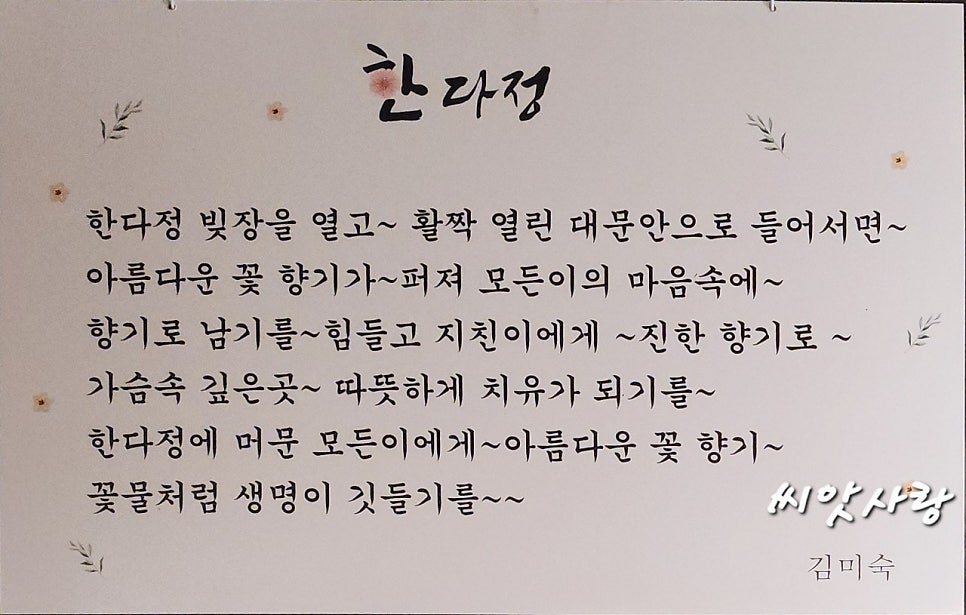 한다정
한다정 빚장을 열고~ 활짝 열린 대문안으로 들어서면~
아름다운 꽃 향기가~퍼져 모든이의 마음속에~
향기로 남기를~힘들고 지친이에게 ~진한 향기로 ~
가슴속 깊은곳~ 따뜻하게 치유가 되기를~
한다정에 머문 모든이에게~아름다운 꽃 향기~
꽃물처럼 생명이 깃들기를~~
씨앗사랑
김미숙